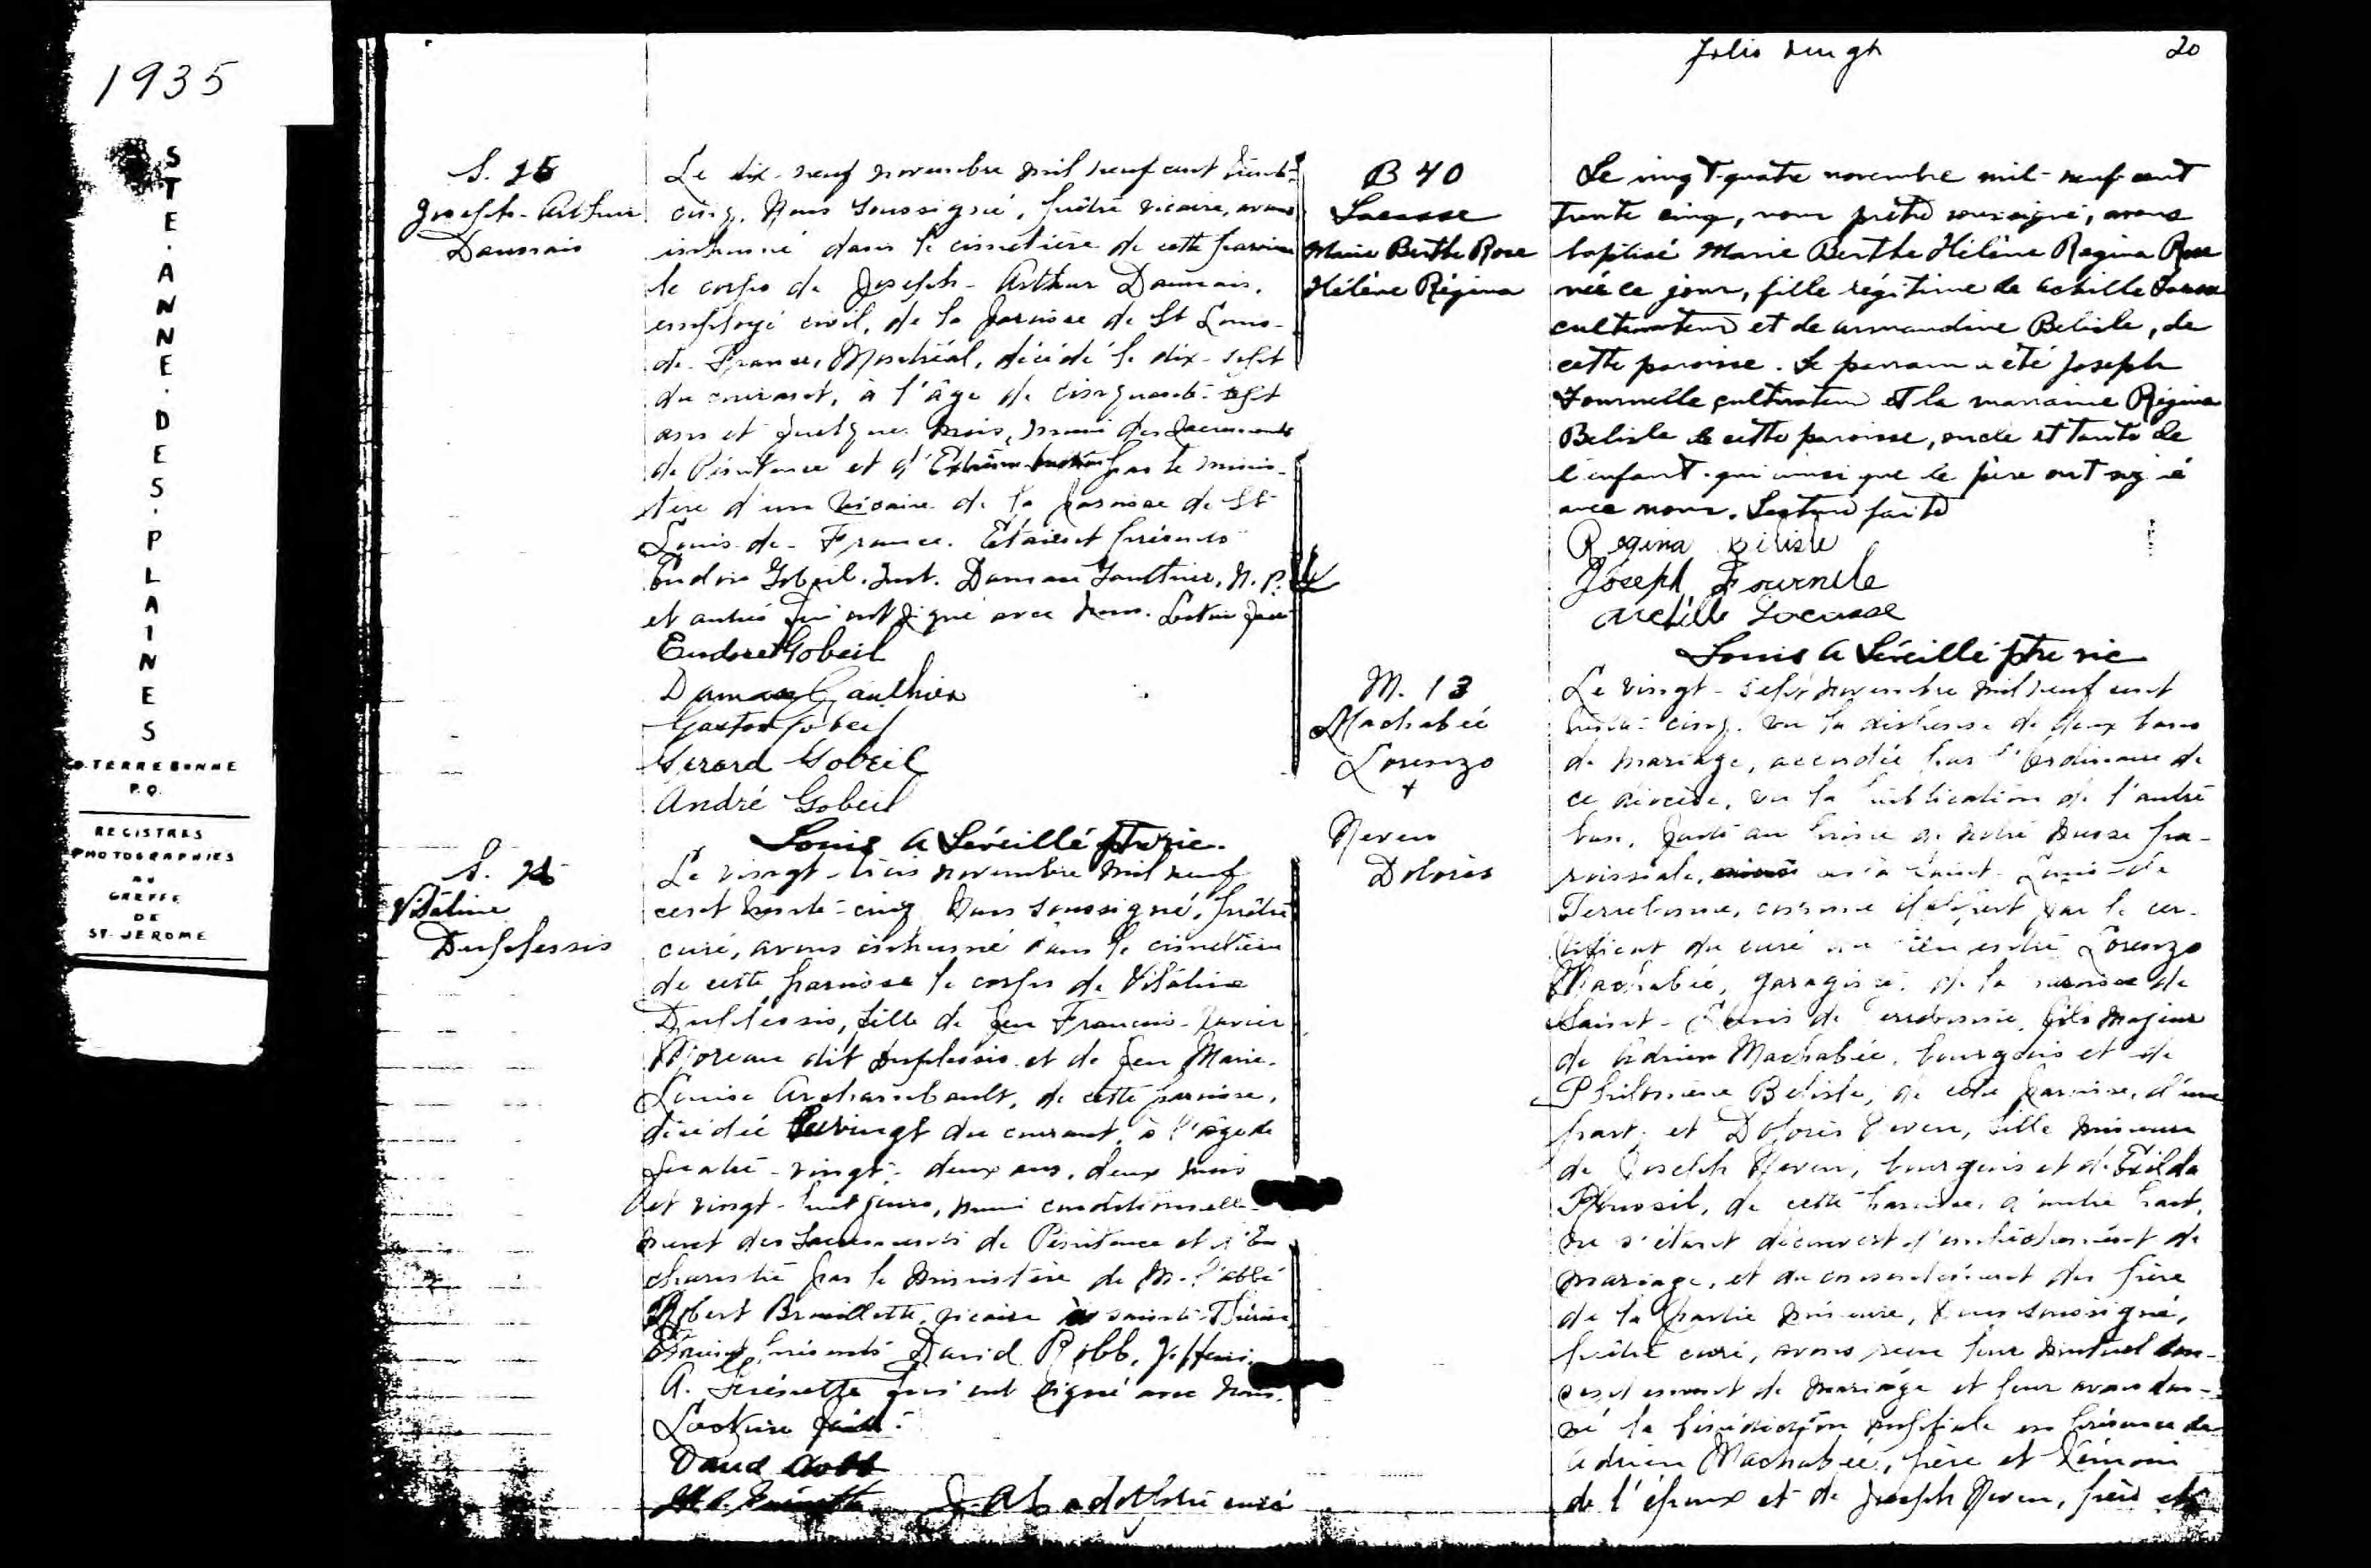 1935
STE.ANNE.DES.PLAINES
P.Q.
REGISTRES
PHOTOGRAPHIES
AU
GREFFE
DE
ST. JEROME
S. 25
Joseph-Arthur
Daunais
Le dix-neuf novembre mil neuf cent trente-
cinq, Nous soussigné, prêtre vicaire, avons
inhumé dans le cimetière de cette paroisse
le corps de Joseph-Arthur Daunais,
employé civil, de la paroisse de St Louis-
de-France, Montréal, décédé le dix-sept
du courant, à l'âge de cinquante-sept
ans et quelques mois, muni des sacrements
de Pénitence et d'Extrême-Onction par le minis-
tère d'un vicaire de la paroisse de St
Louis-de-France. Etaient présents
Eudore Gobeil, Damase Gauthier, N.P.
et autres qui ont signé avec nous. Lecture faite
Eudore Gobeil
Damase Gauthier
Gaston Gobeil
Gerard Gobeil
André Gobeil
Louis A Léveillé ptre vic.
S.
Vitaline
Duplessis
Le vingt-trois novembre mil neuf
cent trente-cinq Nous soussigné, prêtre
curé, avons inhumé dans le cimetière
de cette paroisse le corps de Vitaline
Duplessis, fille de feu François-Xavier
Moreau dit Duplessis et de feu Marie-
Louise Archambault, de cette paroisse,
décédée le vingt du courant, à l'âge de
quatre-vingt-deux ans, deux mois
et vingt-huit jours, muni conditionnelle-
ment des Sacrements de Pénitence et d'Eu
charistie par le ministère de M. l'abbé
Robert Brouillette, vicaire à sainte-Thérèse
Etaient présents David Robb,
A. Frénette qui ont signé avec nous.
Lecture faite.
David Robb
curé
Folio vingt
20
B 40
Lacasse
Marie Berthe Rose
Hélène Régina
Le vingt-quatre novembre mil-neuf-cent
trente cinq, nous prêtre soussigné, avons
baptisé Marie Berthe Hélène Regina Rose
née ce jour, fille légitime de Achille Lacasse
cultivateur et de Armandine Belisle, de
cette paroisse. Le parrain a été Joseph
Fournelle cultivateur et la marraine Régina
Belisle de cette paroisse, oncle et tante de
l'enfant qui ainsi que le père ont signé
avec nous. Lecture faite
Regina Belisle
Joseph Fournelle
Achille Lacasse
Louis A Léveillé ptre vic
M. 13
Machabée
Lorenzo
+
Neveu
Dolorès
Le vingt-sept novembre mil neuf cent
trente-cinq, vu la dispense de deux bans
de mariage, accordée par l'Ordinaire de
ce diocèse, vu la publication de l'autre
ban, faite au prône de notre messe pa-
roissiale, à Saint-Louis-de
Terrebonne, comme il appert par le cer-
tificat du curé du lieu entre Lorenzo
Machabée, garagiste, de la paroisse de
Saint-Louis de Terrebonne, fils majeur
de Adrien Machabée, bourgeois et de
Philomène Belisle, de cette paroisse, d'une
part; et Dolorès Neveu, fille mineure
de Joseph Neveu, bourgeois et de Exilda
de cette paroisse, d'autre part,
ne s'étant découvert d'empêchement de
mariage, et du consentement du père
de la partie mineure, Nous soussigné,
prêtre curé, avons reçu leur mutuel con-
sentement de mariage et leur avons don-
né la bénédiction nuptiale en présence de
Adrien Machabée, père et témoin
de l'époux et de Joseph Neveu, père et